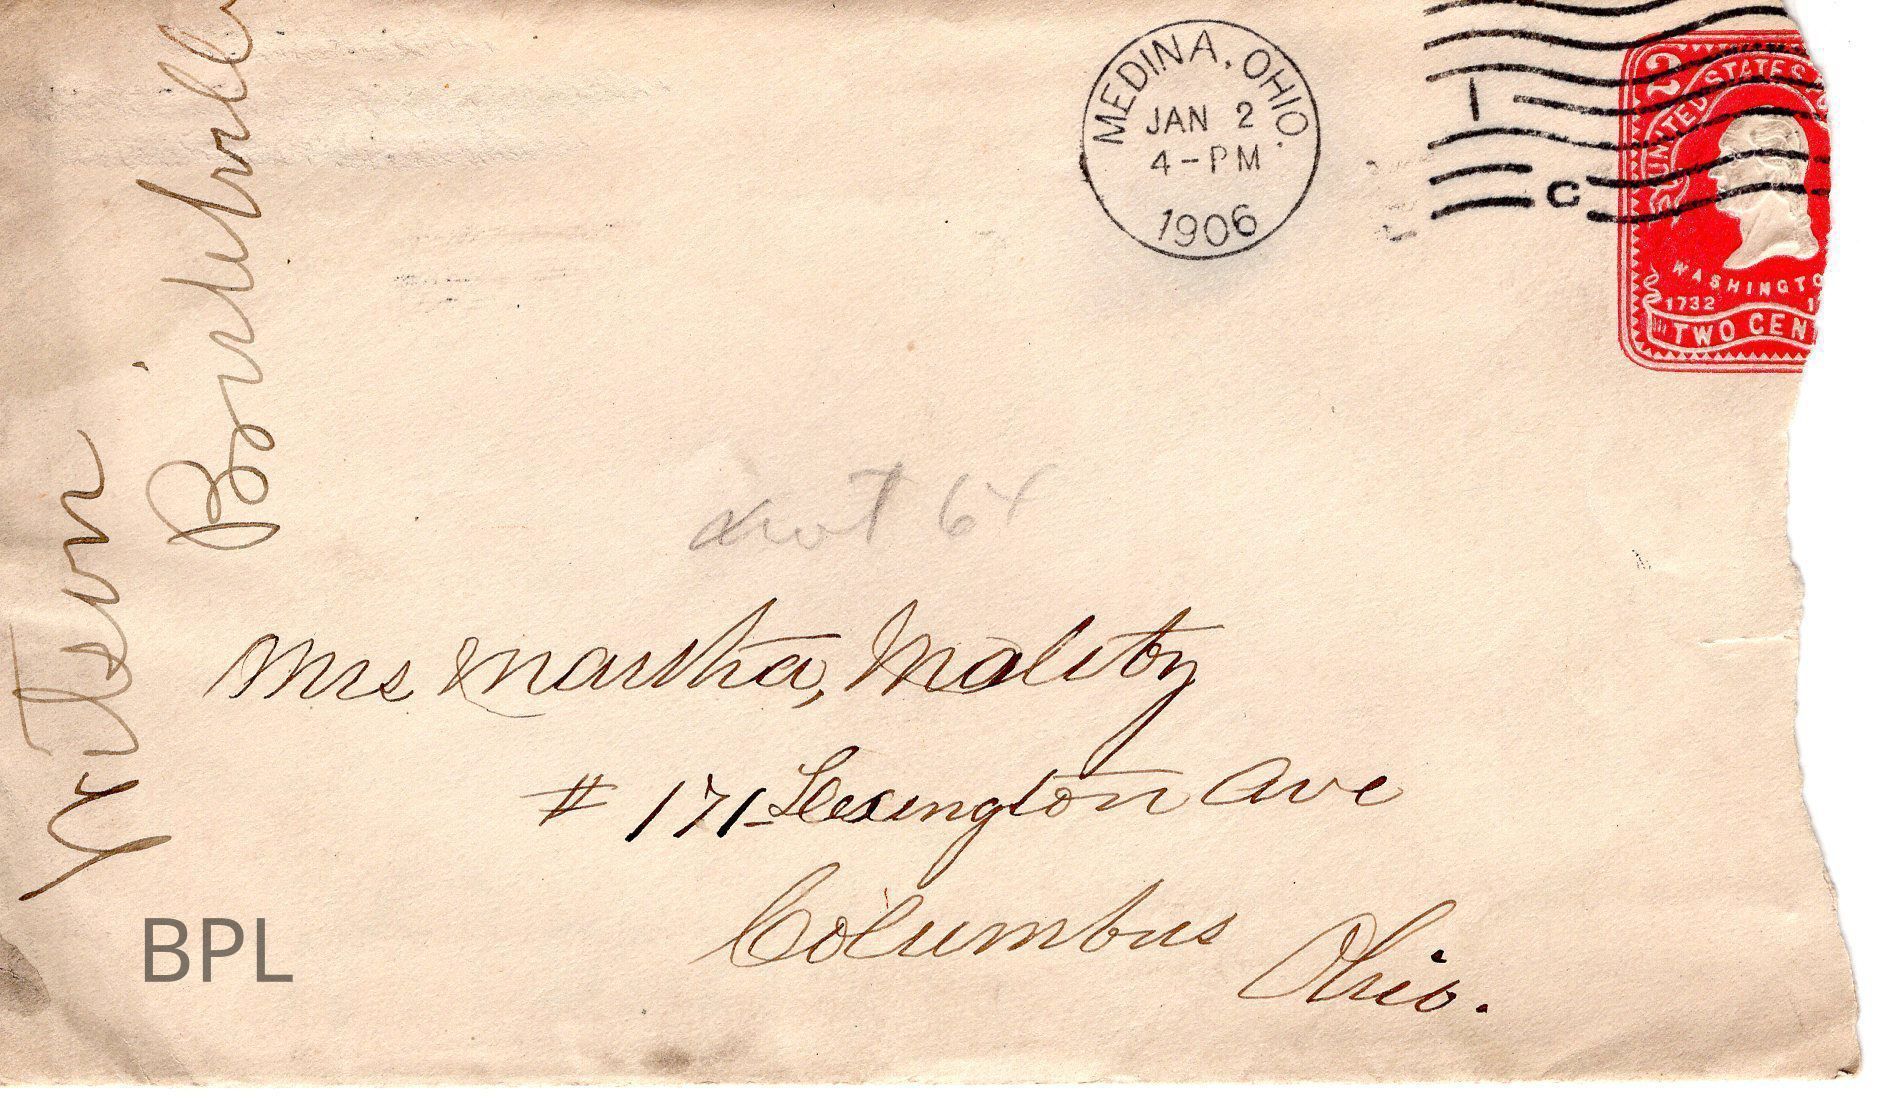 MEDINA, OHIO.
JAN 2
4-PM
1906
1
C
2
UNITED STATES
WASHINGTO
1732 1
TWO CEN
Lot 64
Mrs Martha, Maltby
# 171 Lexington Ave
Columbus
Ohio.
BPL